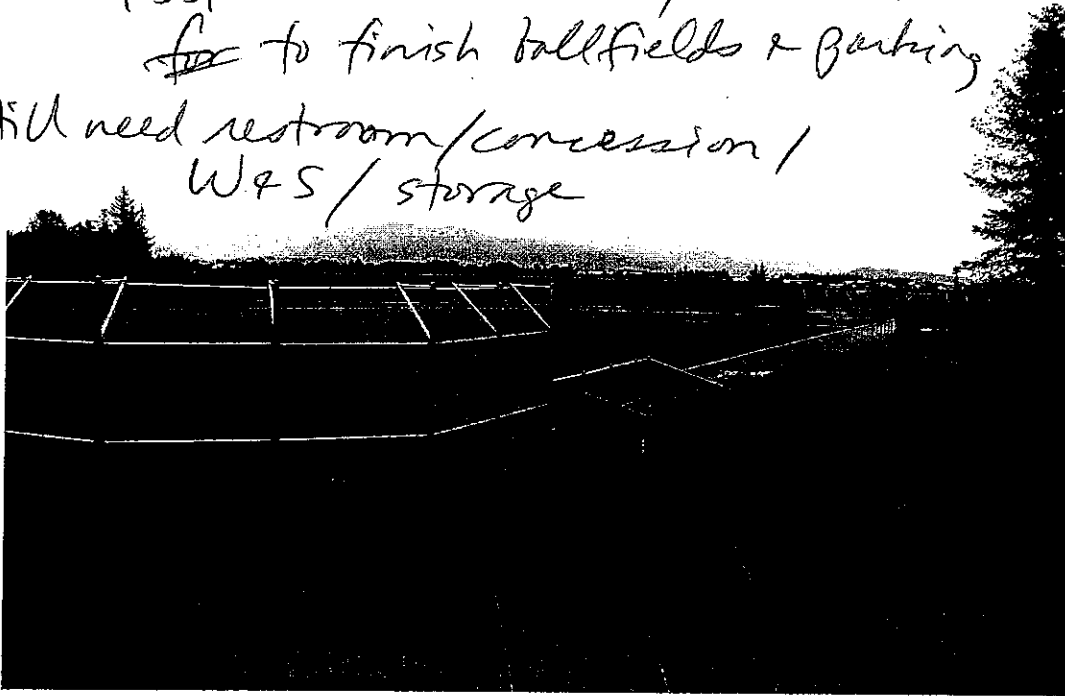 for to finish ballfields & parking
till need restroom/concession/
W&S / storage